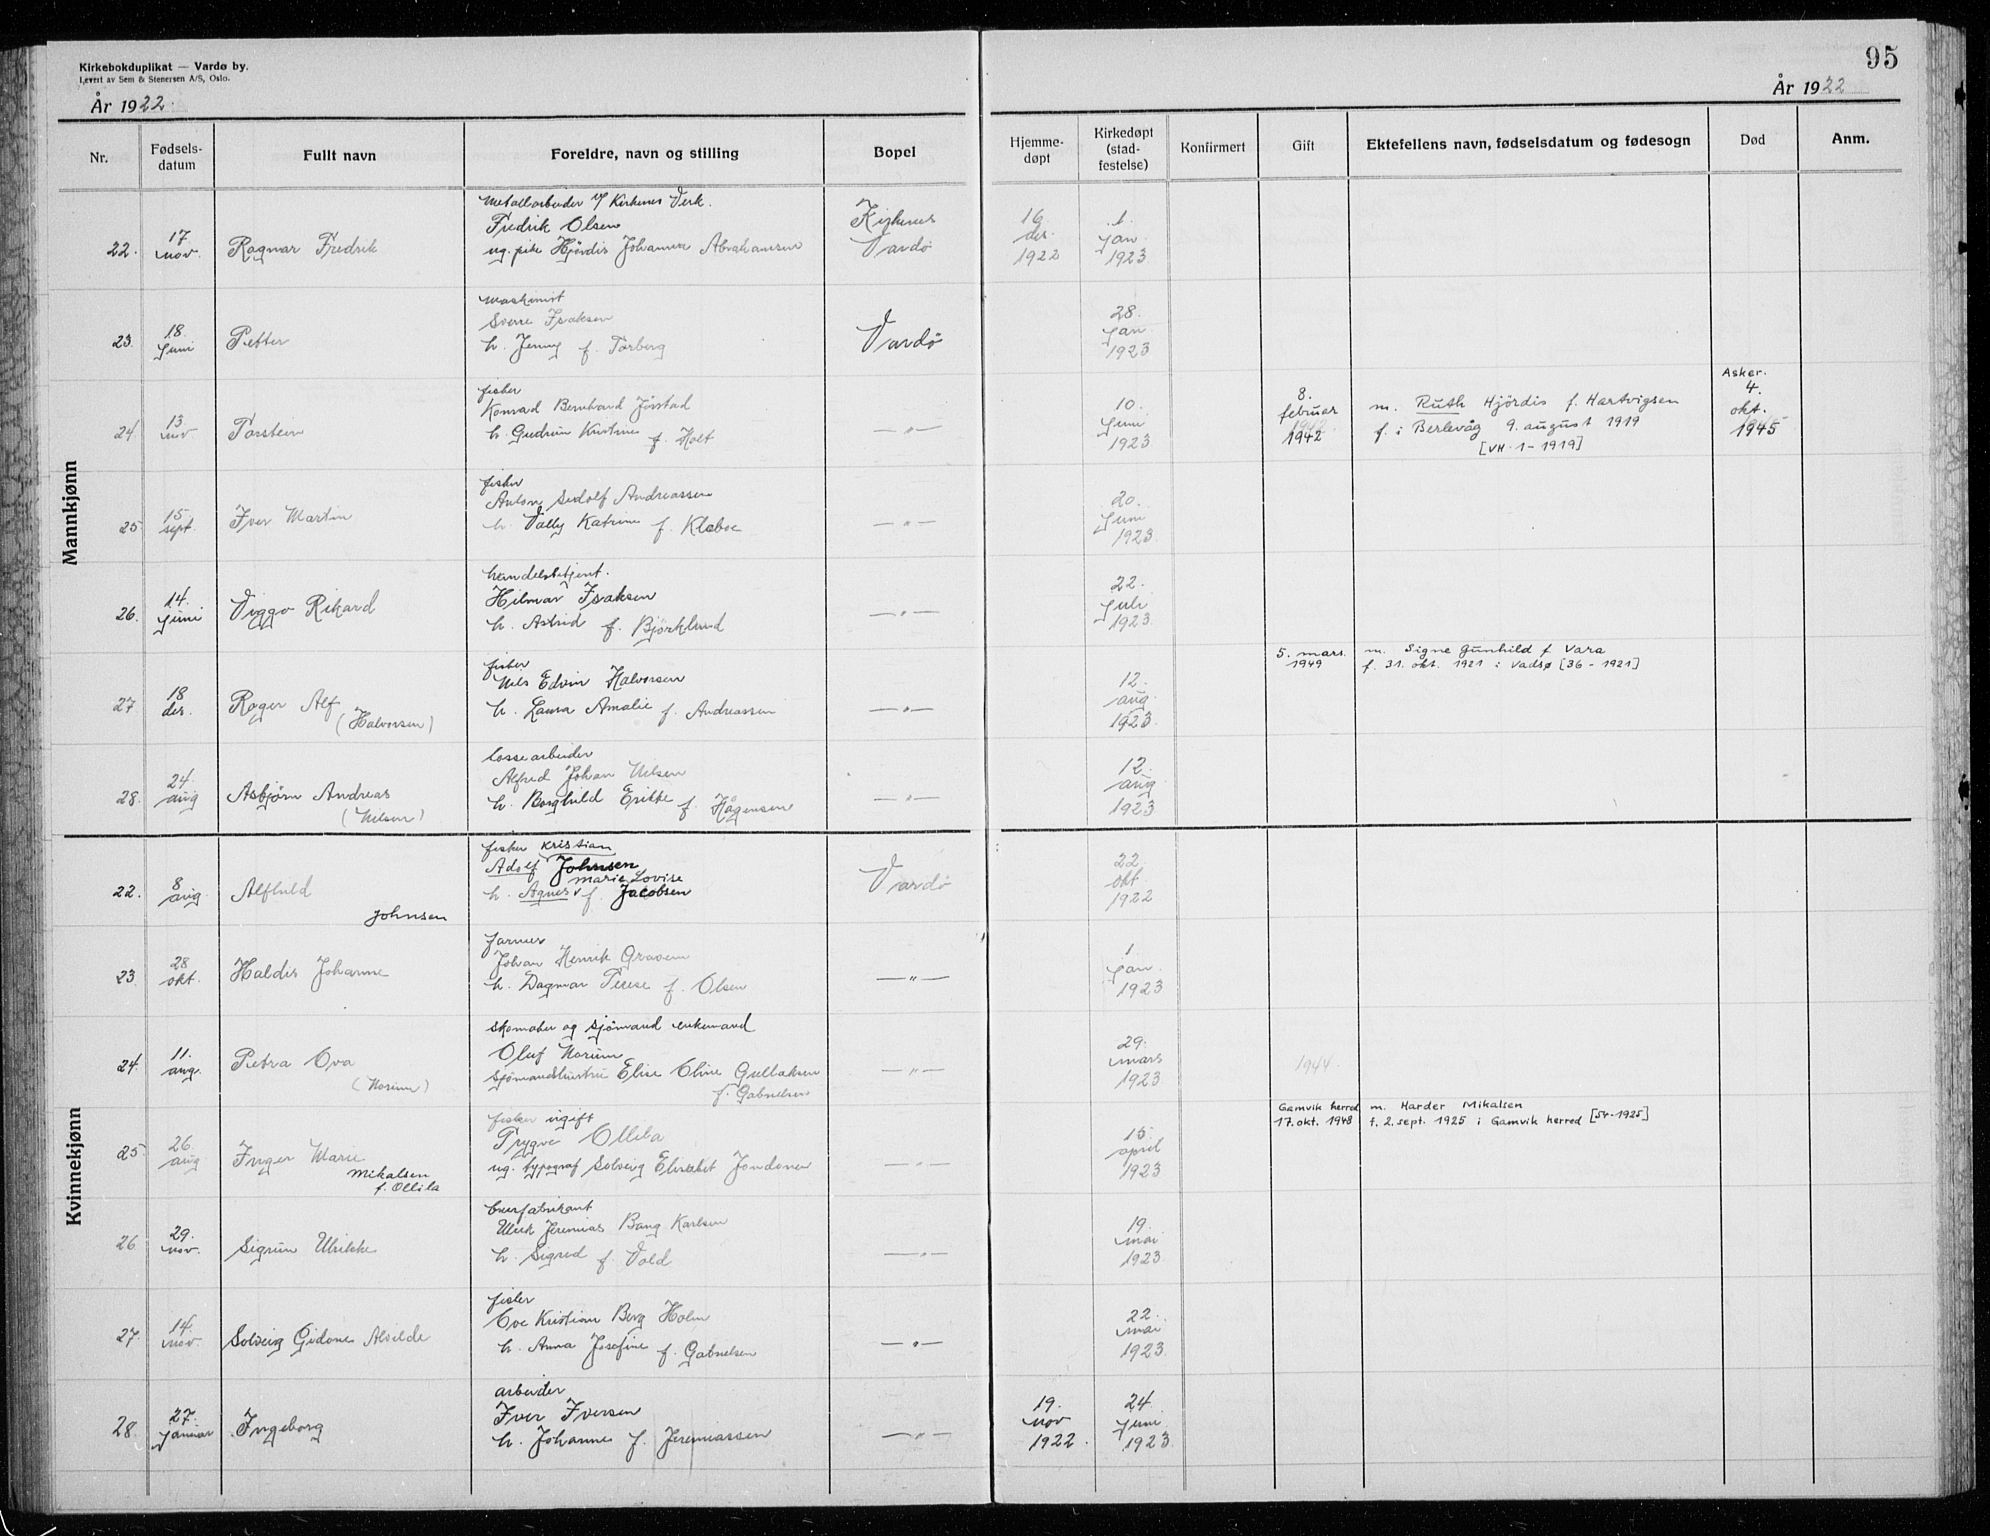 Kirkebokduplikat — Vardø by.
Levert av Sem & Stenersen A/S, Oslo.
År 1922.
95
År 1922
Nr.
Fødsels-
datum
Fullt navn
Foreldre, navn og stilling
Bopel
Hjemme-
døpt
Kirkedøpt
(stad-
festelse)
Konfirmert
Gift
Ektefellens navn, fødselsdatum og fødesogn
Død
Anm.
Mannkjønn
22.
17.
nov.
Ragnar Fredrik
Metallarbeider v/ Kirkenes Verk.
Fredrik Olsen
ug. pike Hjørdis Johanne Abrahamsen
Kirkenes
Vardø
16
des.
1922
1.
Jan.
1923
23.
18.
Juni
Petter
Maskinist
Sverre Isaksen
h. Jenny f. Torberg
Vardø
28.
Jan
1923
24
13
nov
Torstein
fisker
Konrad Bernhard Jørstad
h. Gudrun Kristine f. Holt
— " —
10.
Juni
1923
8.
februar
1942
m. Ruth Hjördis f. Hartvigsen
f. i Berlevåg 9. august 1919
[VH. 1-1919]
Asker.
4.
okt.
1945
25
15
sept.
Iver Martin
fisker
Anton Sedolf Andreassen
h. Vally Katrine f. Klæboe
— " —
20.
Juni
1923
26.
14.
Juni
Viggo Rikard
handelsbetjent.
Hilmar Isaksen
h. Astrid f. Björklund
— " —
22.
Juli
1923
27
18
des.
Roger Alf
(Halvorsen)
fisker
Nils Edvin Halvorsen
h. Laura Amalie f. Andreassen
— " —
12.
aug.
1923.
5. mars.
1949
m. Signe Gunhild f. Vara
f. 31. okt. 1921 i Vadsø [36-1921]
28.
24.
aug
Asbjørn Andreas
(Nilsen)
lossearbeider
Alfred Johan Nilsen
h. Borghild Erikke f. Hågensen
— " —
12.
aug
1923
Kvinnekjønn
22.
8
aug.
Alfhild
Johnsen
fisker Kristian
Adolf Johnsen
Marie Lovise
h. Agnes f. Jacobsen
Vardø
22
okt.
1922
23
28
okt.
Haldis Johanne
Johan Henrik Graven
h. Dagmar Terese f. Olsen
— " —
1
Jan.
1923
24.
11.
aug.
Petra Ova
(Norum)
Skomaker og sjømand enkemand
Oluf Norum
Sjømandshustru Elise Oline Gullaksen
f. Gabrielsen
— " —
29.
mars
1923
1944.
25
26.
aug
Inger Marie
Mikalsen
f. Ollila
fisker ugift
Trygve Ollila
ug. typograf Solveig Elisabet
— " —
15.
april
1923
Gamvik herred
17. okt. 1948
m. Harder Mikalsen
f. 2. sept. 1925 i Gamvik herred [54-1925]
26
29.
nov.
Sigrun Ulrikke
Ulrik Jeremias Bang Karlsen
h. Sigrid f. Vold
— " —
19.
mai
1923
27.
14.
nov.
Solveig Gidone Alvilde
fisker
Ove Kristian Berg Holm
h. Anna Josefine f. Gabrielsen
— " —
22.
mai
1923
28.
27.
Januar
Ingeborg
arbeider
Iver Iversen
h. Johanne f. Jeremiassen
— " —
19.
nov
1922.
24
Juni
1923